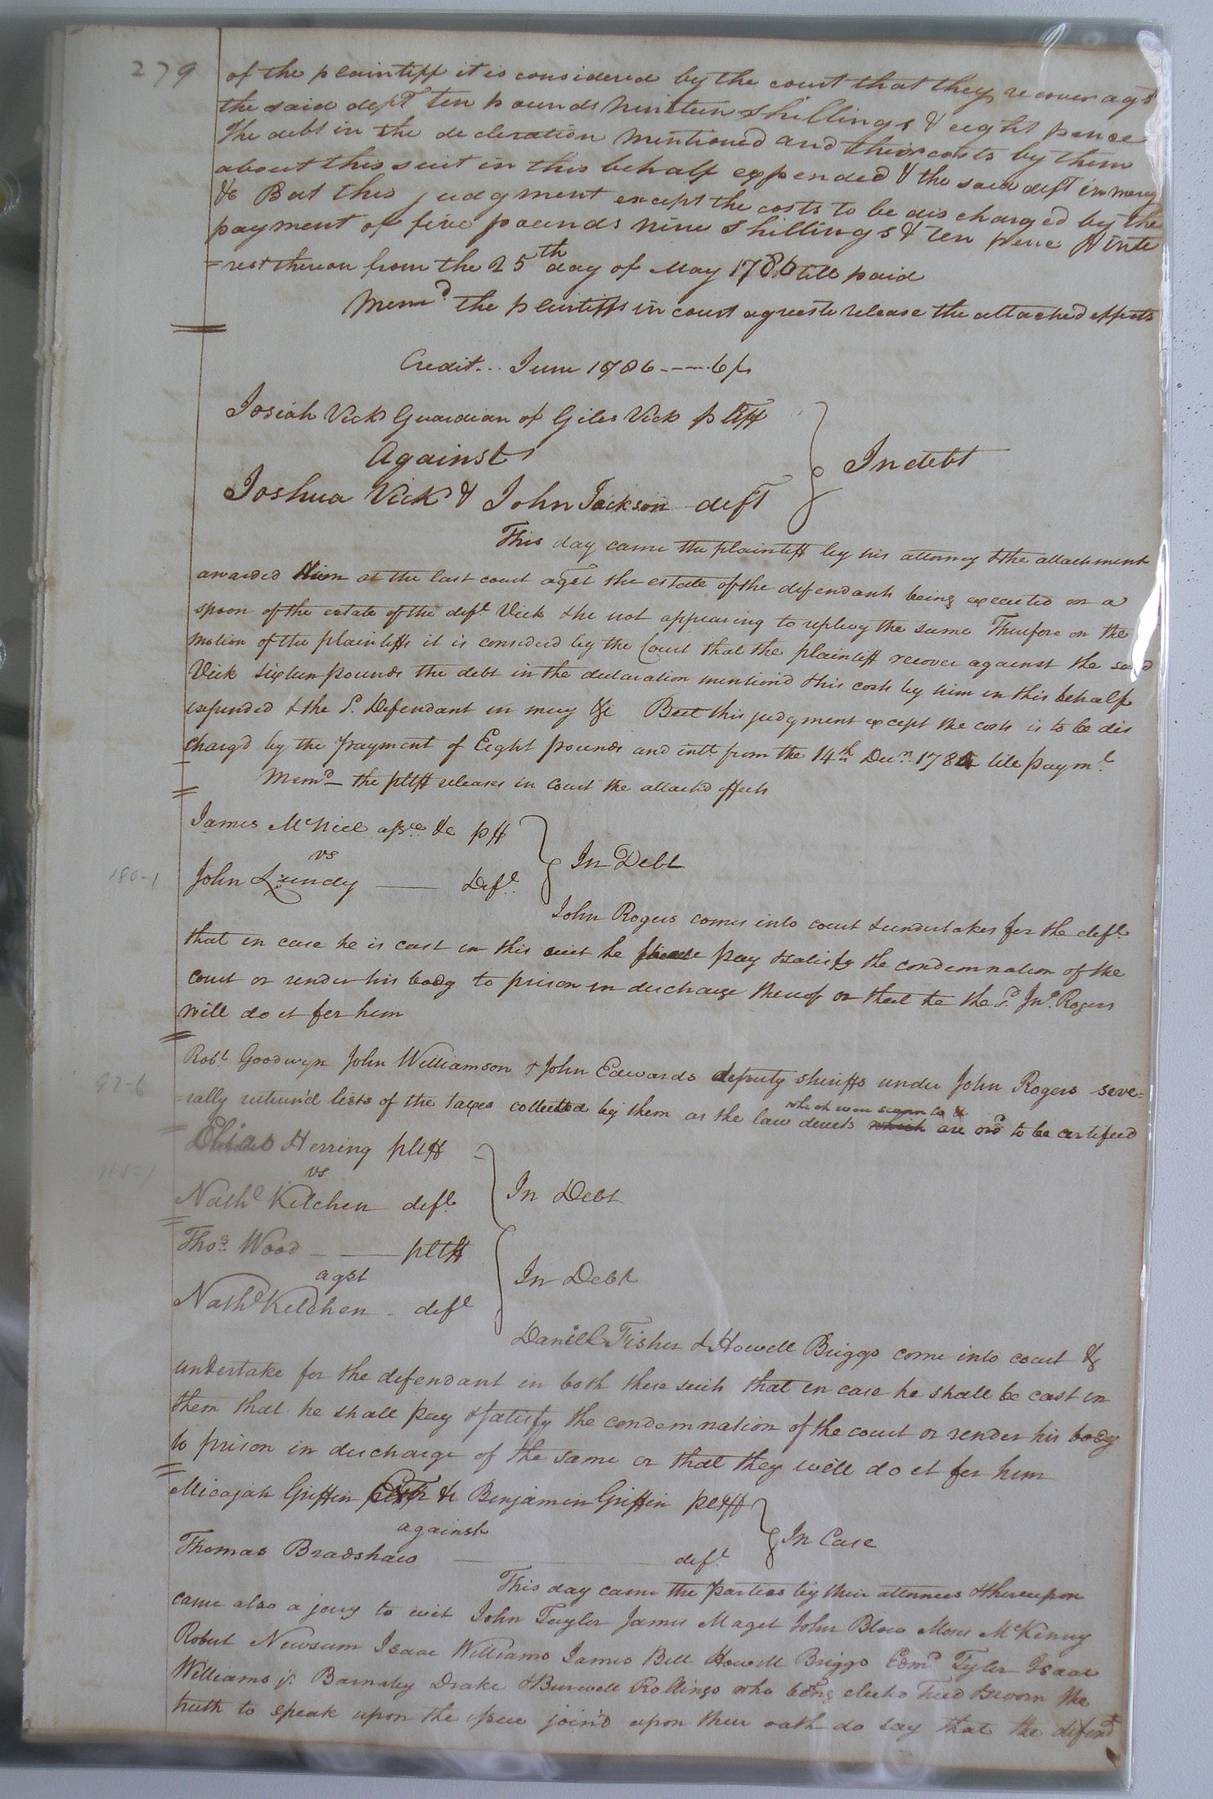 279
of the plaintiff it is considered by the court that they recover agst
the said deft ten pounds nineteen shillings & eight pence
The debt in the declaration mentioned and their costs by them
about this suit in this behalf expended & the said deft in mercy
&c But this judgment except the costs to be discharged by the
payment of five pounds nine shillings & ten pence & inte
=rest thereon from the 25th day of May 1786 till paid
Memd the plaintiffs in court agrees to release the attached effects
Credit... June 1786 ---- 6/
Josiah Vick Guardian of Giles Vick pltff
Against
Joshua Vick & John Jackson deft
In debt
This day came the plaintiff by his attorney & the attachment
awarded him at the last court agst the estate of the defendants being executed on a
spoon of the estate of the deft Vick & he not appearing to replevy the same Therefore on the
motion of the plaintiffs it is considered by the Court that the plaintiff recover against the said
Vick sixteen pounds the debt in the declaration mention'd & his costs by him in this behalf
expended & the sd. Defendant in mercy &c But this judgment except the costs is to be dis
charg'd by the payment of Eight pounds and intt from the 14th Decr. 178 till paymt.
Memd— the pltff releases in Court the attach'd effects
James McNiel assee &c ptf
vs
180-1
John Lundy —— Deft.
In Debt
John Rogers comes into court & undertakes for the deft.
that in case he is cast in this suit he pay & satisfy the condemnation of the
court or render his body to prison in discharge thereof or that he the sd. Jno. Rogers
will do it for him
92-6
Robt Goodwyn John Williamson & John Edwards deputy sheriffs under John Rogers seve=
=rally return'd lists of the taxes collected by them as the law directs which are ord to be certified
which were sworn to &
Elias Herring pltff
vs
Nathl Kitchen deft
In Debt
Thos. Wood —— pltff
agst
Nathl Kitchen - deft
In Debt
Daniel Fisher & Howell Briggs come into court &
undertake for the defendant in both these suits that in case he shall be cast in
them that he shall pay & satisfy the condemnation of the court or render his body
to prison in discharge of the same or that they will do it for him
Micajah Griffin Exr &c Benjamin Griffin pltff
against
Thomas Bradshaw —— deft.
In Case
This day came the parties by their attornies & thereupon
came also a jury to wit John Taylor James Maget John Blow Moses McKenny
Robert Newsum Isaac Williams James Bell Howell Briggs Edmd Tyler Isaac
Williams jr. Barnaby Drake & Burwell Rollings who being elected tried & sworn the
truth to speak upon the issue join'd upon their oath do say that the defend